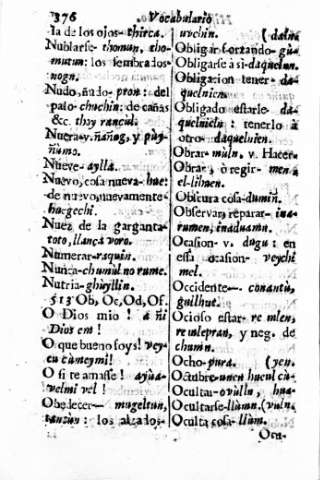 376 Vocabulario
la de los ojos- thirca.
Nublarse- thomun, tho-
mutun: los sembrados-
nogn.
Nudo, ñudo- pron: del
palo- chuchin: de cañas
&c. thoy rancul.
Nuera- v. ñañog, y puy-
ñumo.
Nueve- aylla.
Nuevo, cosa nueva- hue:
de nuevo, nuevamente-
huegechi.
Nuez de la garganta-
toto, llancá voro.
Numerar- raquin.
Nunca- chumul no rume.
Nutria- ghùyllin.
513 Ob, Oc, Od, Of.
O Dios mio! a ñi
Dios em!
O que bueno soys! vey-
cu cúmeymi!
O si te amasse!
velmi vel!
Obedecer- mugeltun,
los alzados-
uvchin. (
Obligar forzando- gù-
Obligarse à si- daquelun.
Obligacion tener- da-
quelnien.
Obligado estarle- da-
quelnieln: tenerlo à
otro- daquelnien.
Obrar- mùln, v. Hacer.
Obrar, ò regir- men à
el-lihuen.
Obscura cosa- dumiñ.
Observar, reparar- ina-
rumen, inaduamn.
Ocasion- v. dugu: en
essa ocasion- veychi
mel.
Occidente- conantù,
gùilhue.
Ocioso estar- re mlen,
re mlepran, y neg. de
chumn.
Ocho- pura. (yen.
Octubre- unen hueul cù-
Ocultar- ovùlln, hua-
Ocultarse- llùmn. (vuln.
Oculta cosa- llùm.
Ocu-